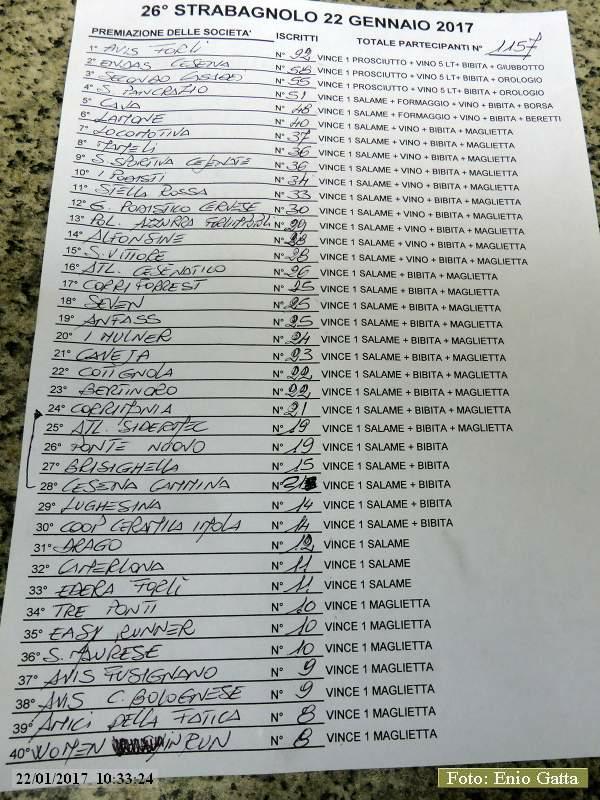 26° STRABAGNOLO 22 GENNAIO 2017
PREMIAZIONE DELLE SOCIETA' ISCRITTI TOTALE PARTECIPANTI N° 1157
1° AVIS FORLI N° 92 VINCE 1 PROSCIUTTO + VINO 5 LT+ BIBITA + GIUBBOTTO
2° ENDAS CESENA N° 58 VINCE 1 PROSCIUTTO + VINO 5 LT+ BIBITA + OROLOGIO
3° SECONDO CASADEI N° 55 VINCE 1 PROSCIUTTO + VINO 5 LT+ BIBITA + OROLOGIO
4° S. PANCRAZIO N° 51 VINCE 1 SALAME + FORMAGGIO + VINO + BIBITA + BORSA
5° CAVA N° 48 VINCE 1 SALAME + FORMAGGIO + VINO + BIBITA + BERETTI
6° LAMONE N° 40 VINCE 1 SALAME + VINO + BIBITA + MAGLIETTA
7° LOCOMOTIVA N° 37 VINCE 1 SALAME + VINO + BIBITA + MAGLIETTA
8° MAMELI N° 36 VINCE 1 SALAME + VINO + BIBITA + MAGLIETTA
9° S. SPORTIVA CESENATE N° 36 VINCE 1 SALAME + VINO + BIBITA + MAGLIETTA
10° I PODISTI N° 34 VINCE 1 SALAME + VINO + BIBITA + MAGLIETTA
11° STELLA ROSSA N° 33 VINCE 1 SALAME + VINO + BIBITA + MAGLIETTA
12° G. PODISTICO CERVESE N° 30 VINCE 1 SALAME + VINO + BIBITA + MAGLIETTA
13° POL. AZZURRA N° 29 VINCE 1 SALAME + VINO + BIBITA + MAGLIETTA
14° ALFONSINE N° 28 VINCE 1 SALAME + VINO + BIBITA + MAGLIETTA
15° S. VITTORE N° 28 VINCE 1 SALAME + VINO + BIBITA + MAGLIETTA
16° ATL. CESENATICO N° 26 VINCE 1 SALAME + BIBITA + MAGLIETTA
17° CORRIFORREST N° 25 VINCE 1 SALAME + BIBITA + MAGLIETTA
18° SEVEN N° 25 VINCE 1 SALAME + BIBITA + MAGLIETTA
19° ANFASS N° 25 VINCE 1 SALAME + BIBITA + MAGLIETTA
20° I MULNER N° 24 VINCE 1 SALAME + BIBITA + MAGLIETTA
21° CAVEJA N° 23 VINCE 1 SALAME + BIBITA + MAGLIETTA
22° COTIGNOLA N° 22 VINCE 1 SALAME + BIBITA + MAGLIETTA
23° BERTINORO N° 22 VINCE 1 SALAME + BIBITA + MAGLIETTA
24° N° 21 VINCE 1 SALAME + BIBITA + MAGLIETTA
25° ATL. SIDERTEC N° 19 VINCE 1 SALAME + BIBITA + MAGLIETTA
26° PONTE NUOVO N° 19 VINCE 1 SALAME + BIBITA
27° BRISIGHELLA N° 15 VINCE 1 SALAME + BIBITA
28° CESENA CAMMINA N° VINCE 1 SALAME + BIBITA
29° LUGHESINA N° 14 VINCE 1 SALAME + BIBITA
30° COOP CERAMICA IMOLA N° 14 VINCE 1 SALAME + BIBITA
31° DRAGO N° 12 VINCE 1 SALAME
32° CAMERLONA N° 11 VINCE 1 SALAME
33° EDERA FORLÌ N° 11 VINCE 1 SALAME
34° TRE PONTI N° 10 VINCE 1 MAGLIETTA
35° EASY RUNNER N° 10 VINCE 1 MAGLIETTA
36° S. MAURESE N° 10 VINCE 1 MAGLIETTA
37° AVIS FUSIGNANO N° 9 VINCE 1 MAGLIETTA
38° AVIS C. BOLOGNESE N° 9 VINCE 1 MAGLIETTA
39° AMICI DELLA FATICA N° 8 VINCE 1 MAGLIETTA
40° WOMEN IN RUN N° 8 VINCE 1 MAGLIETTA
22/01/2017 10:33:24
Foto: Enio Gatta